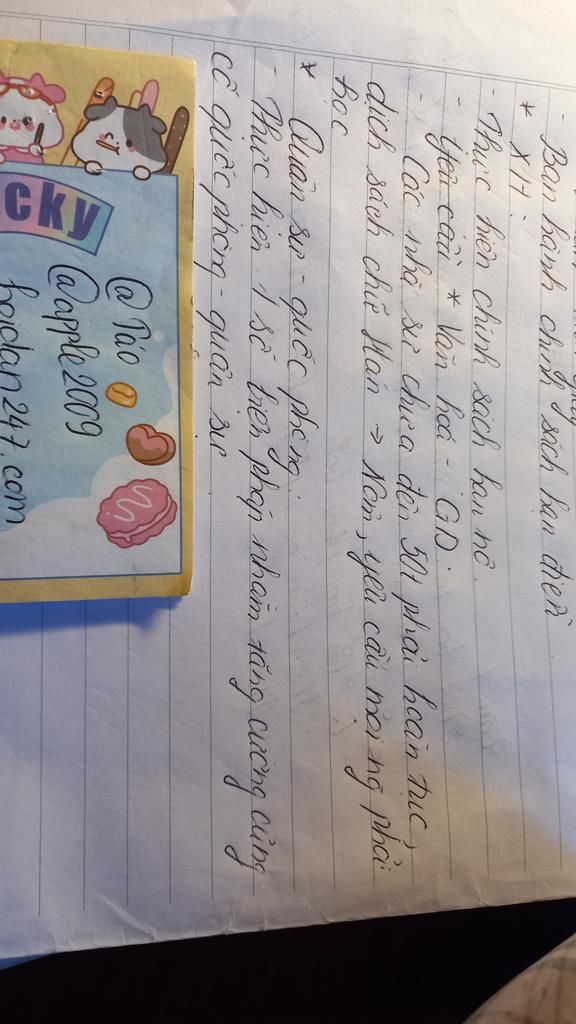 - Ban hành chính sách hạn điền
* XH:
- Thực hiện chính sách hạn nô.
- Yêu cầu * Văn hoá - GD:
- Các nhà sư chưa đến 50t phải hoàn tục,
dịch sách chữ Hán → Nôm, yêu cầu mọi ng phải
học
* Quân sự - quốc phòng:
- Thực hiện 1 số biện pháp nhằm tăng cường củng
cố quốc phòng - quân sự
cky
@Táo
@apple2009
hoidan247.com